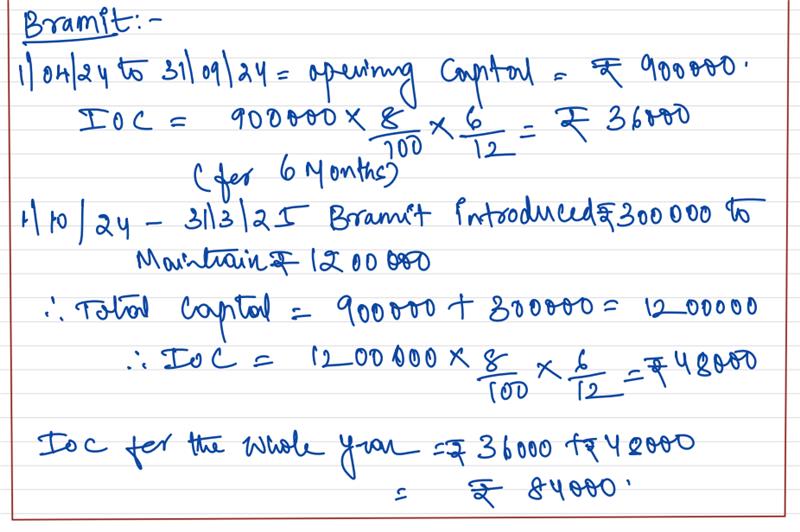 Bramit:-
1/04/24 to 31/09/24 = opening Capital = ₹ 900000.
IOC = 900000 × 8/100 × 6/12 = ₹ 36000
(for 6 Months)
1/10/24 - 31/3/25 Bramit introduced ₹300000 to
Maintrain ₹ 1200000
∴ Total Capital = 900000 + 300000 = 1200000
∴ IOC = 1200000 × 8/100 × 6/12 = ₹48000
IOC for the whole year = ₹ 36000 + ₹48000
= ₹ 84000.